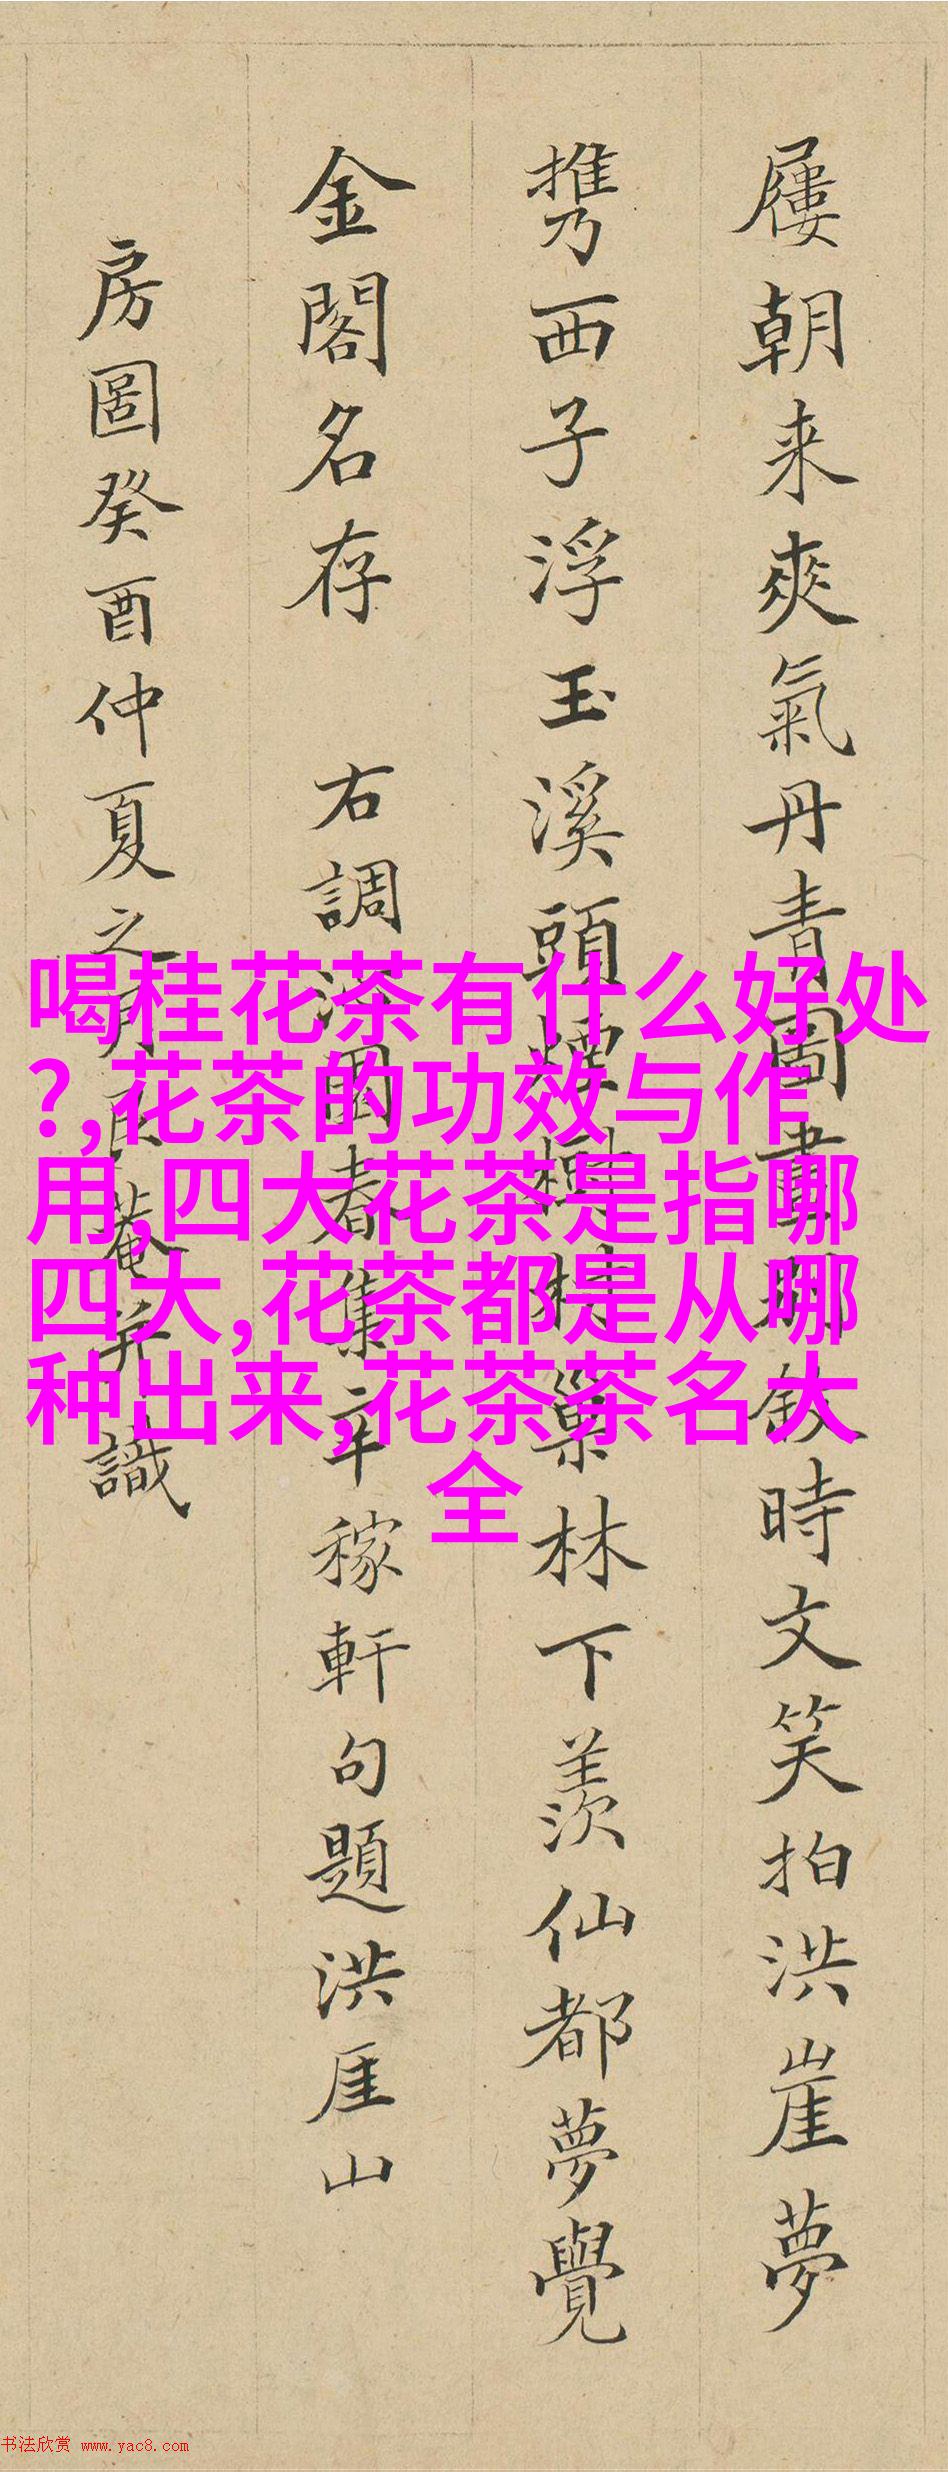 屢朝来爽氣丹青圖畫時文笑拍洪崖夢
携西子浮玉溪頭煙樹村巢林下羨仙都夢覺
金閣名存 右調沁園春集辛稼軒句題洪厓山
房圖癸酉仲夏之月菴并識
喝桂花茶有什么好处
?,花茶的功效与作
用,四大花茶是指哪
四大,花茶都是从哪
种出来,花茶茶名大
全
书法欣赏 www.yac8.com